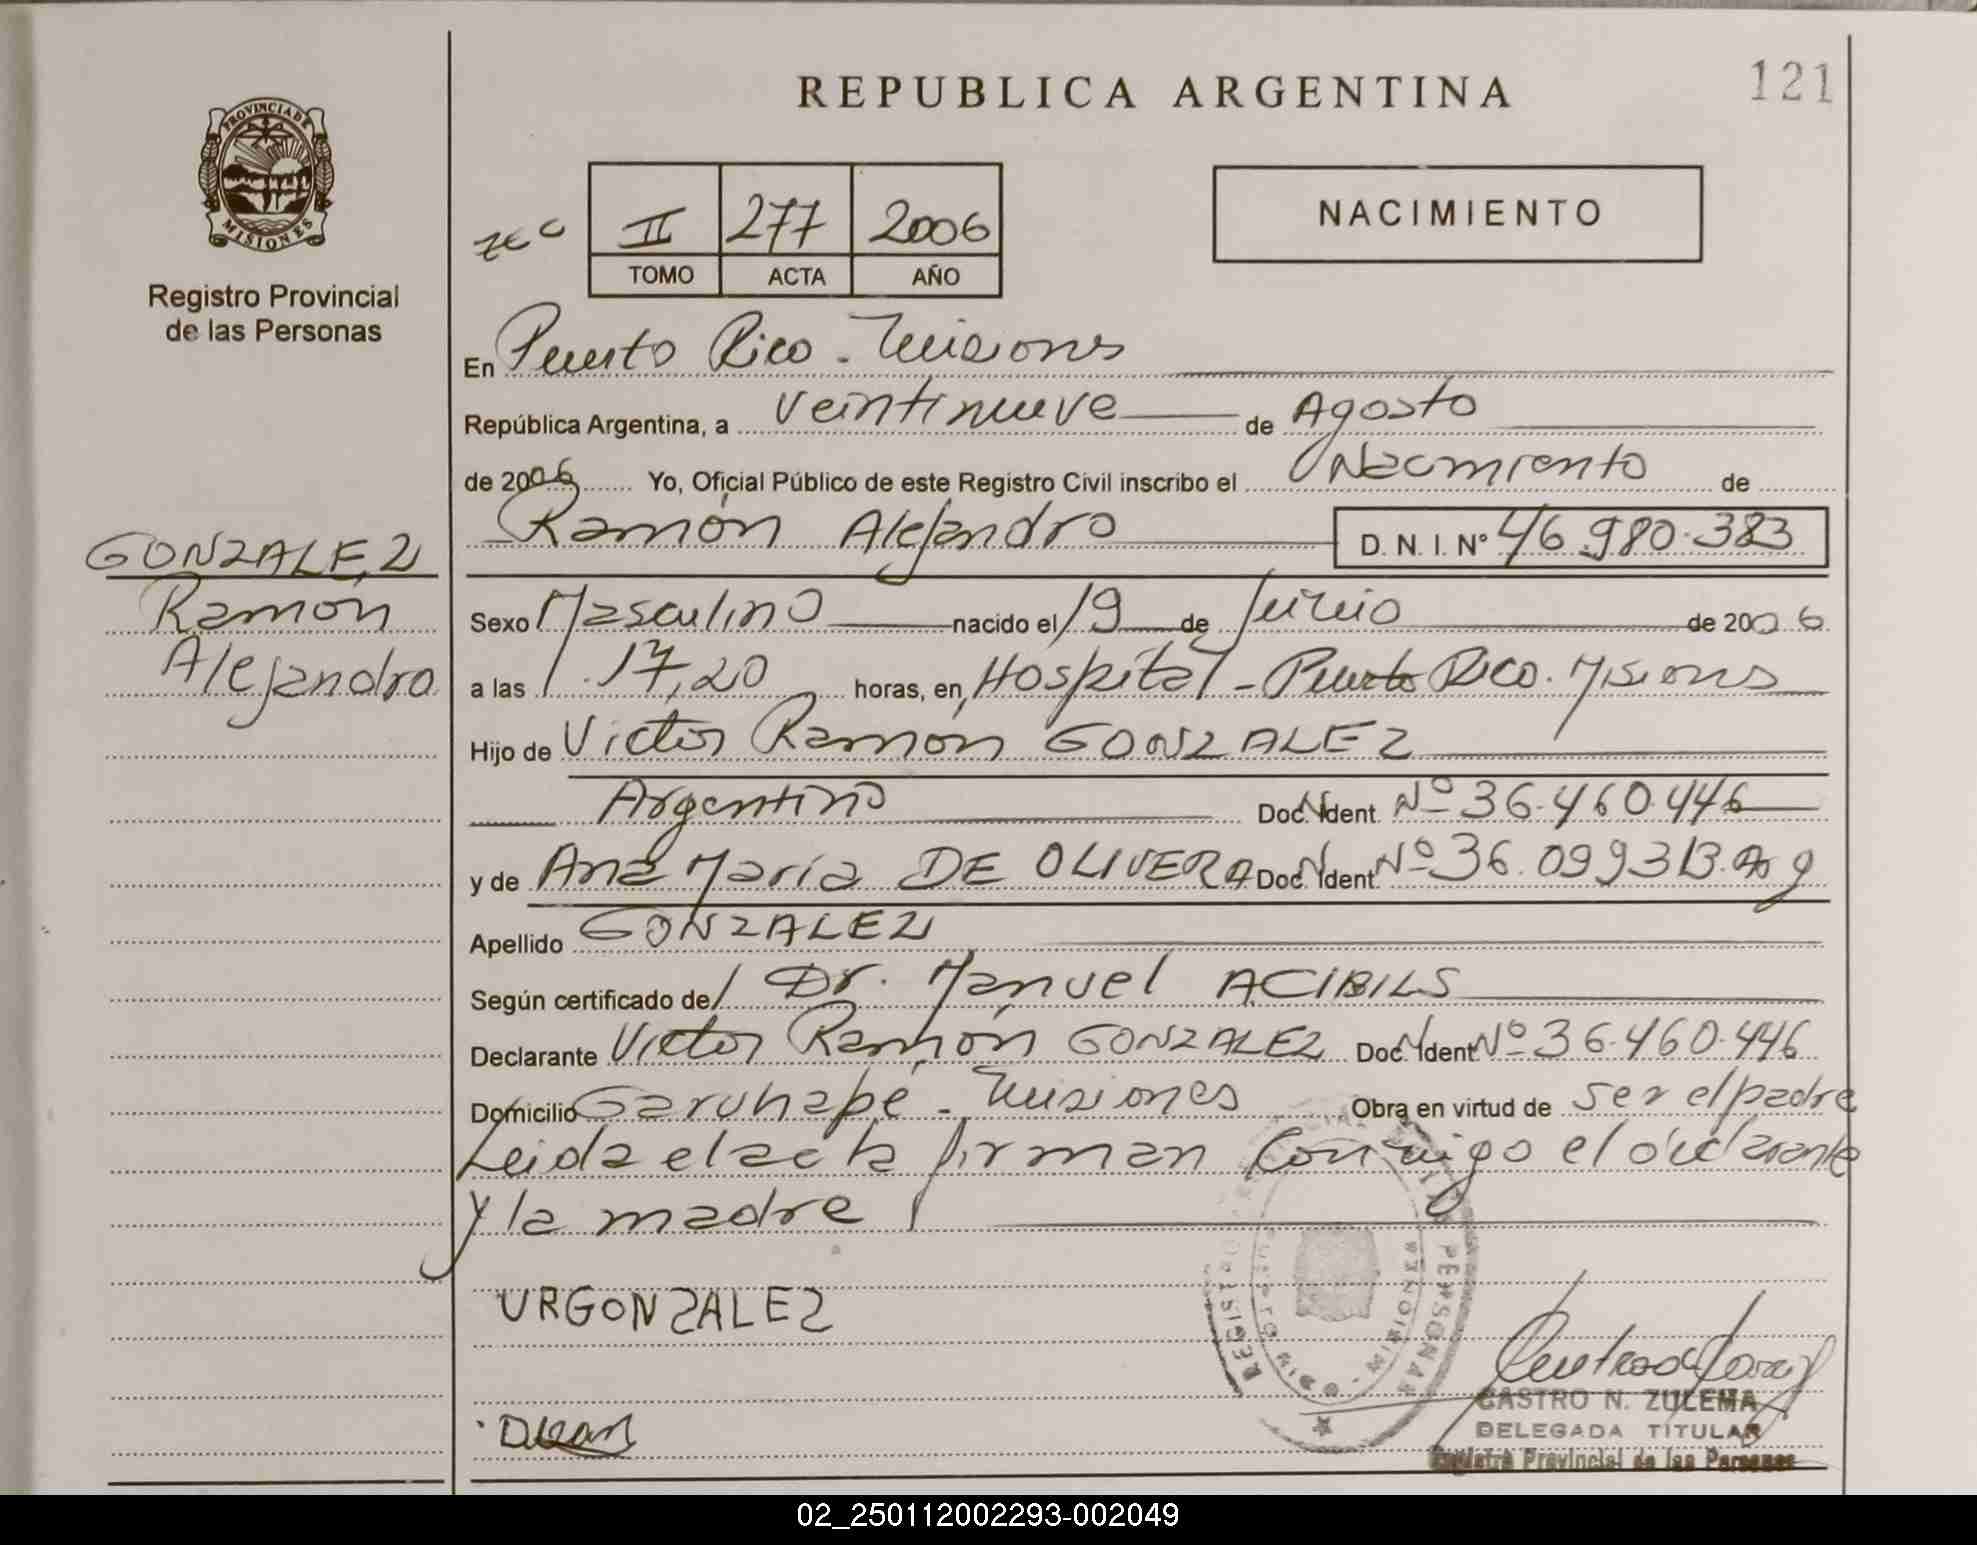 REPUBLICA ARGENTINA
121
PROVINCIA DE
MISIONES
Registro Provincial
de las Personas
II 277 2006
TOMO ACTA AÑO
NACIMIENTO
En Puerto Rico - Misiones
República Argentina, a veintinueve de Agosto
de 2006 Yo, Oficial Público de este Registro Civil inscribo el Nacimiento de
Ramón Alejandro D. N. I. Nº 46.980.383
GONZALEZ
Ramón
Alejandro
Sexo Masculino nacido el 19 de Junio de 2006
a las 17,20 horas, en Hospital - Puerto Rico. Misiones
Hijo de Victor Ramón GONZALEZ
Argentino Doc. Ident. Nº 36.460.446
y de Ana Maria DE OLIVERA Doc. Ident. Nº 36.099313. Arg
Apellido GONZALEZ
Según certificado de Dr. Manuel ACIBILS
Declarante Victor Ramón GONZALEZ Doc. Ident. Nº 36.460.446
Domicilio Garuhapé - Misiones Obra en virtud de ser el padre
Leida el acta firman conmigo el declarante
y la madre
VRGONZALEZ
CASTRO N. ZULEMA
DELEGADA TITULAR
Registro Provincial de las Personas
02_250112002293-002049